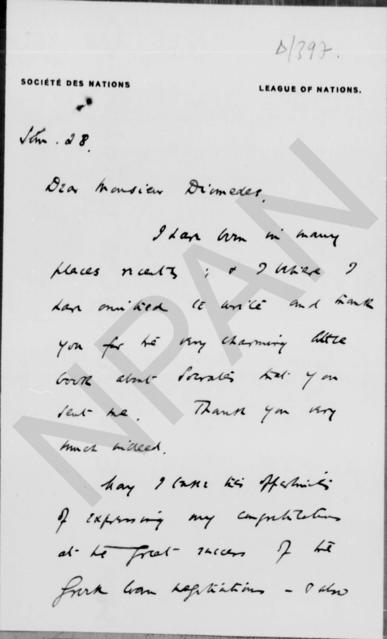 D/397.
SOCIÉTÉ DES NATIONS
LEAGUE OF NATIONS.
28.
Dear Monsieur Diomedes,
I have been in many
places recently; & I believe I
have omitted to write and thank
you for the very charming little
book about Socrates that you
sent me. Thank you very
much indeed.
May I take this opportunity
of expressing my congratulations
at the great success of the
Greek loan negotiations - & also
NPAN